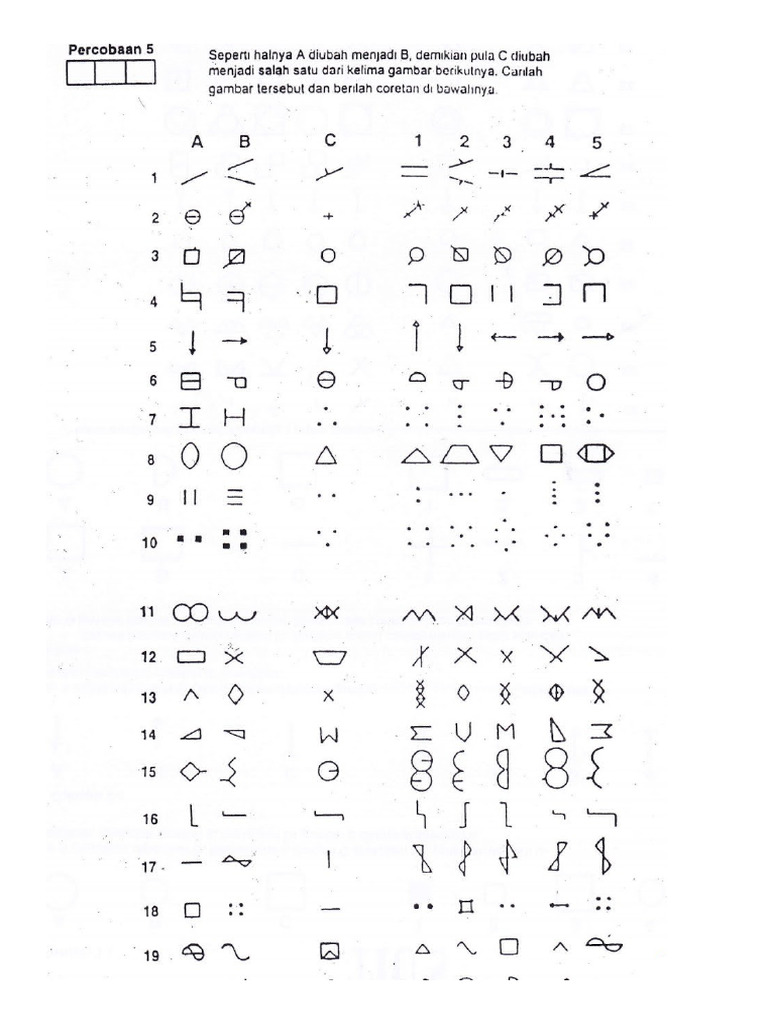 Percobaan 5
Seperti halnya A diubah menjadi B, demikian pula C diubah
menjadi salah satu dari kelima gambar berikutnya. Carilah
gambar tersebut dan berilah coretan di bawahnya.
A B C 1 2 3 4 5
1
2
3
4
5
6
7
8
9
10
11
12
13
14
15
16
17
18
19